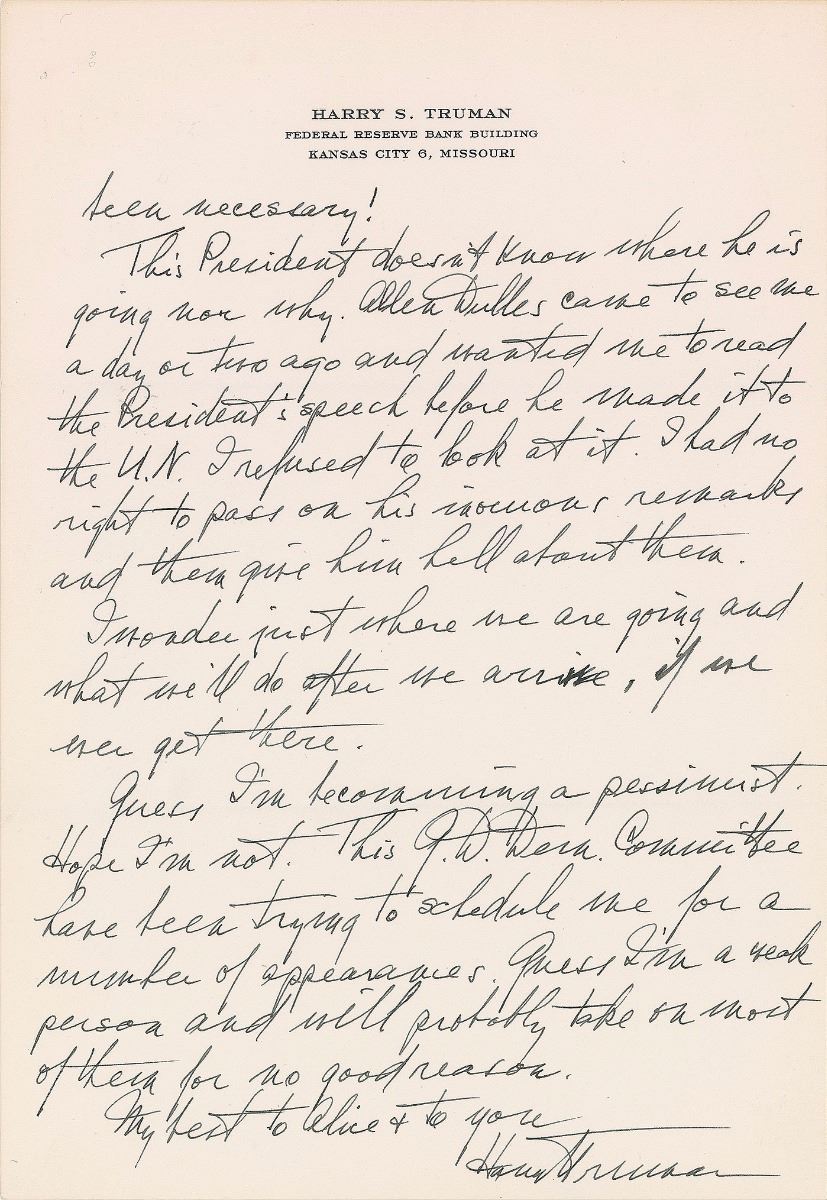 HARRY S. TRUMAN
FEDERAL RESERVE BANK BUILDING
KANSAS CITY 6, MISSOURI
been necessary!
This President doesn't know where he is
going nor why. Allen Dulles came to see me
a day or two ago and wanted me to read
the President's speech before he made it to
the U.N. I refused to look at it. I had no
right to pass on his remarks
and them give him hell about them.
I wonder just where we are going and
what we'll do after we arrive, if we
ever get there.
Guess I'm becomming a pessimist.
Hope I'm not. This G.D. Dem. Committee
have been trying to schedule me for a
number of appearances. Guess I'm a weak
person and will probably take on most
of them for no good reason.
My best to Alice & to you
Harry Truman